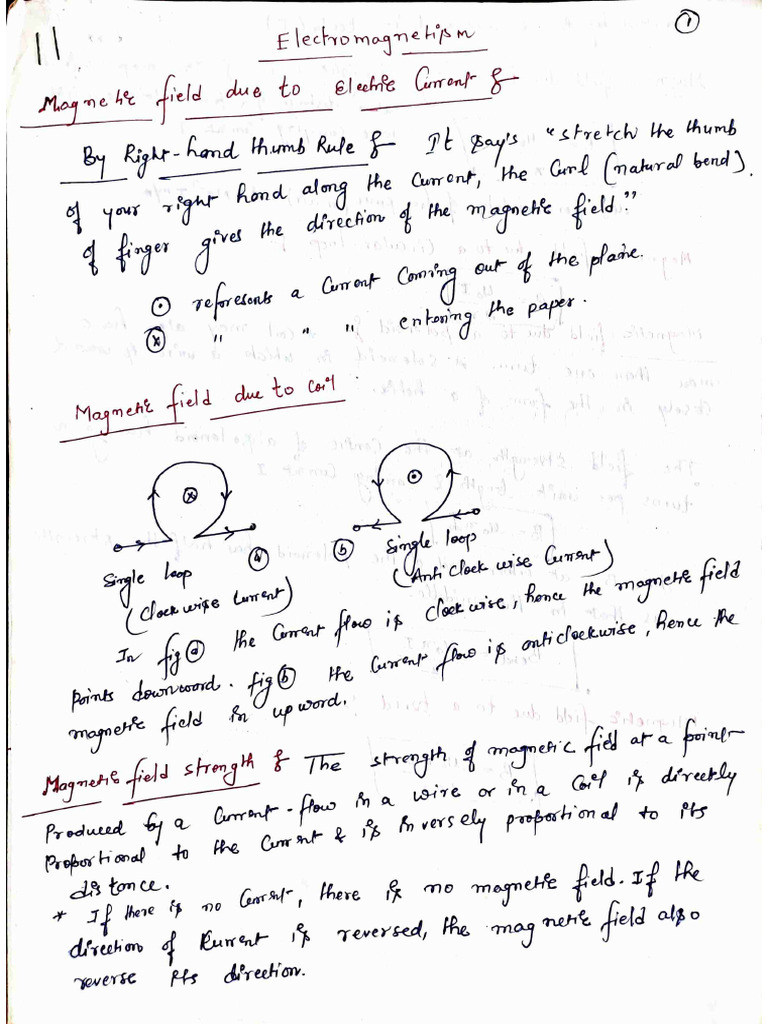 11
①
Electromagnetism
Magnetic field due to Electric Current :-
By Right-hand thumb Rule :- It say's "stretch the thumb
of your right hand along the current, the Curl (natural bend).
of finger gives the direction of the magnetic field."
⊙ represents a Current Coming out of the plane.
ⓧ " " " entering the paper.
Magnetic field due to coil
Single loop ⓐ
(Clock wise Current)
ⓑ Single loop
(Anti clock wise Current)
In fig ⓐ the Current flow is clock wise, hence the magnetic field
points downword. fig ⓑ the Current flow is anticlockwise, hence the
magnetic field in upword.
Magnetic field strength :- The strength of magnetic field at a point
Produced by a Current-flow in a wire or in a Coil is directly
Proportional to the Current & is Inversely proportional to its
distance.
* If there is no Current, there is no magnetic field. If the
direction of Current is reversed, the magnetic field also
reverse its direction.